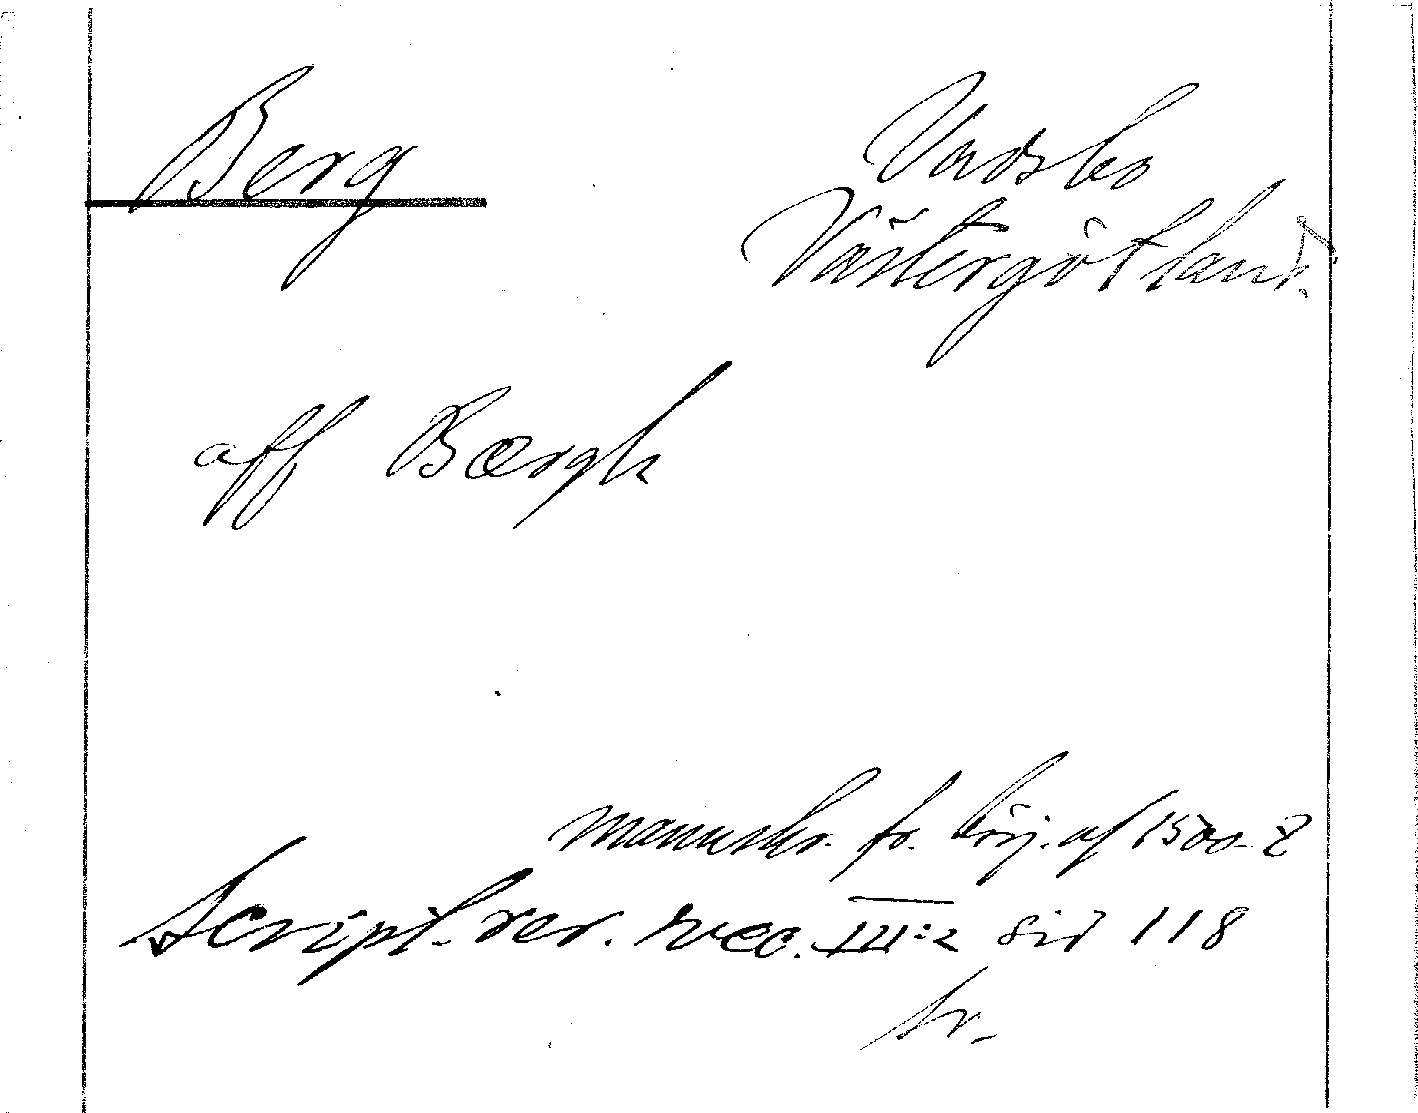 Berg
Vadsbo
Västergötland.
aff Bærgh
manuskr. fr. börj. af 1500-t
Script. rer. svec. III:2 sid 118
tr.